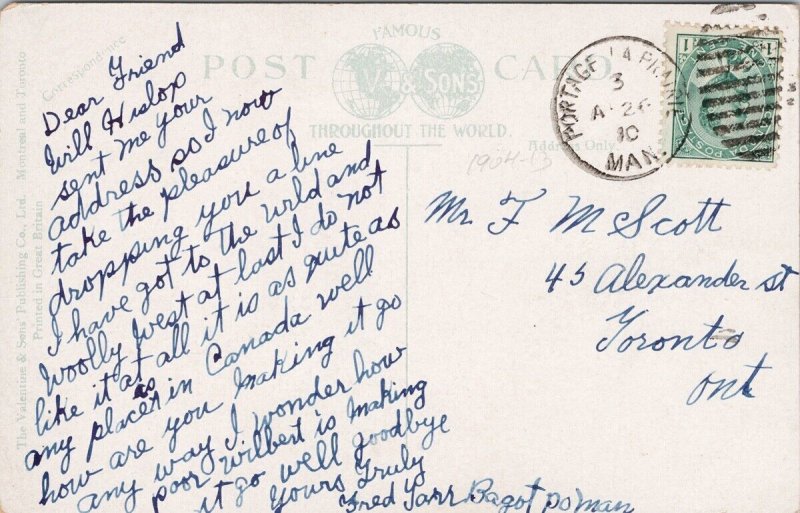 FAMOUS
POST CARD
V & SONS
THROUGHOUT THE WORLD.
Correspondence
Address Only.
The Valentine & Sons' Publishing Co., Ltd., Montreal and Toronto
Printed in Great Britain
PORTAGE LA PRAIRIE
3
A 26
10
MAN.
1904-13
Dear Friend
Will Hislop
sent me your
address so I now
take the pleasure of
dropping you a line
I have got to the wild and
Woolly West at last I do not
like it at all it is as quite as
any place as in Canada well
how are you making it go
any way I wonder how
poor Wilbert is making
it go well goodbye
Yours Truly
Fred Tarr Bagot PO Man
Mr. F McScott
45 Alexander st
Toronto
Ont